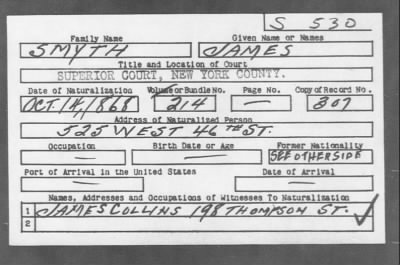 S 530
Family Name Given Name or Names
SMYTH JAMES
Title and Location of Court
SUPERIOR COURT, NEW YORK COUNTY.
Date of Naturalization Volume or Bundle No. Page No. Copy of Record No.
OCT. 14, 1868 214 — 307
Address of Naturalized Person
525 WEST 46TH ST.
Occupation Birth Date or Age Former Nationality
— — SEE OTHERSIDE
Port of Arrival in the United States Date of Arrival
— —
Names, Addresses and Occupations of Witnesses To Naturalization
1 JAMES COLLINS 198 THOMPSON ST. ✓
2